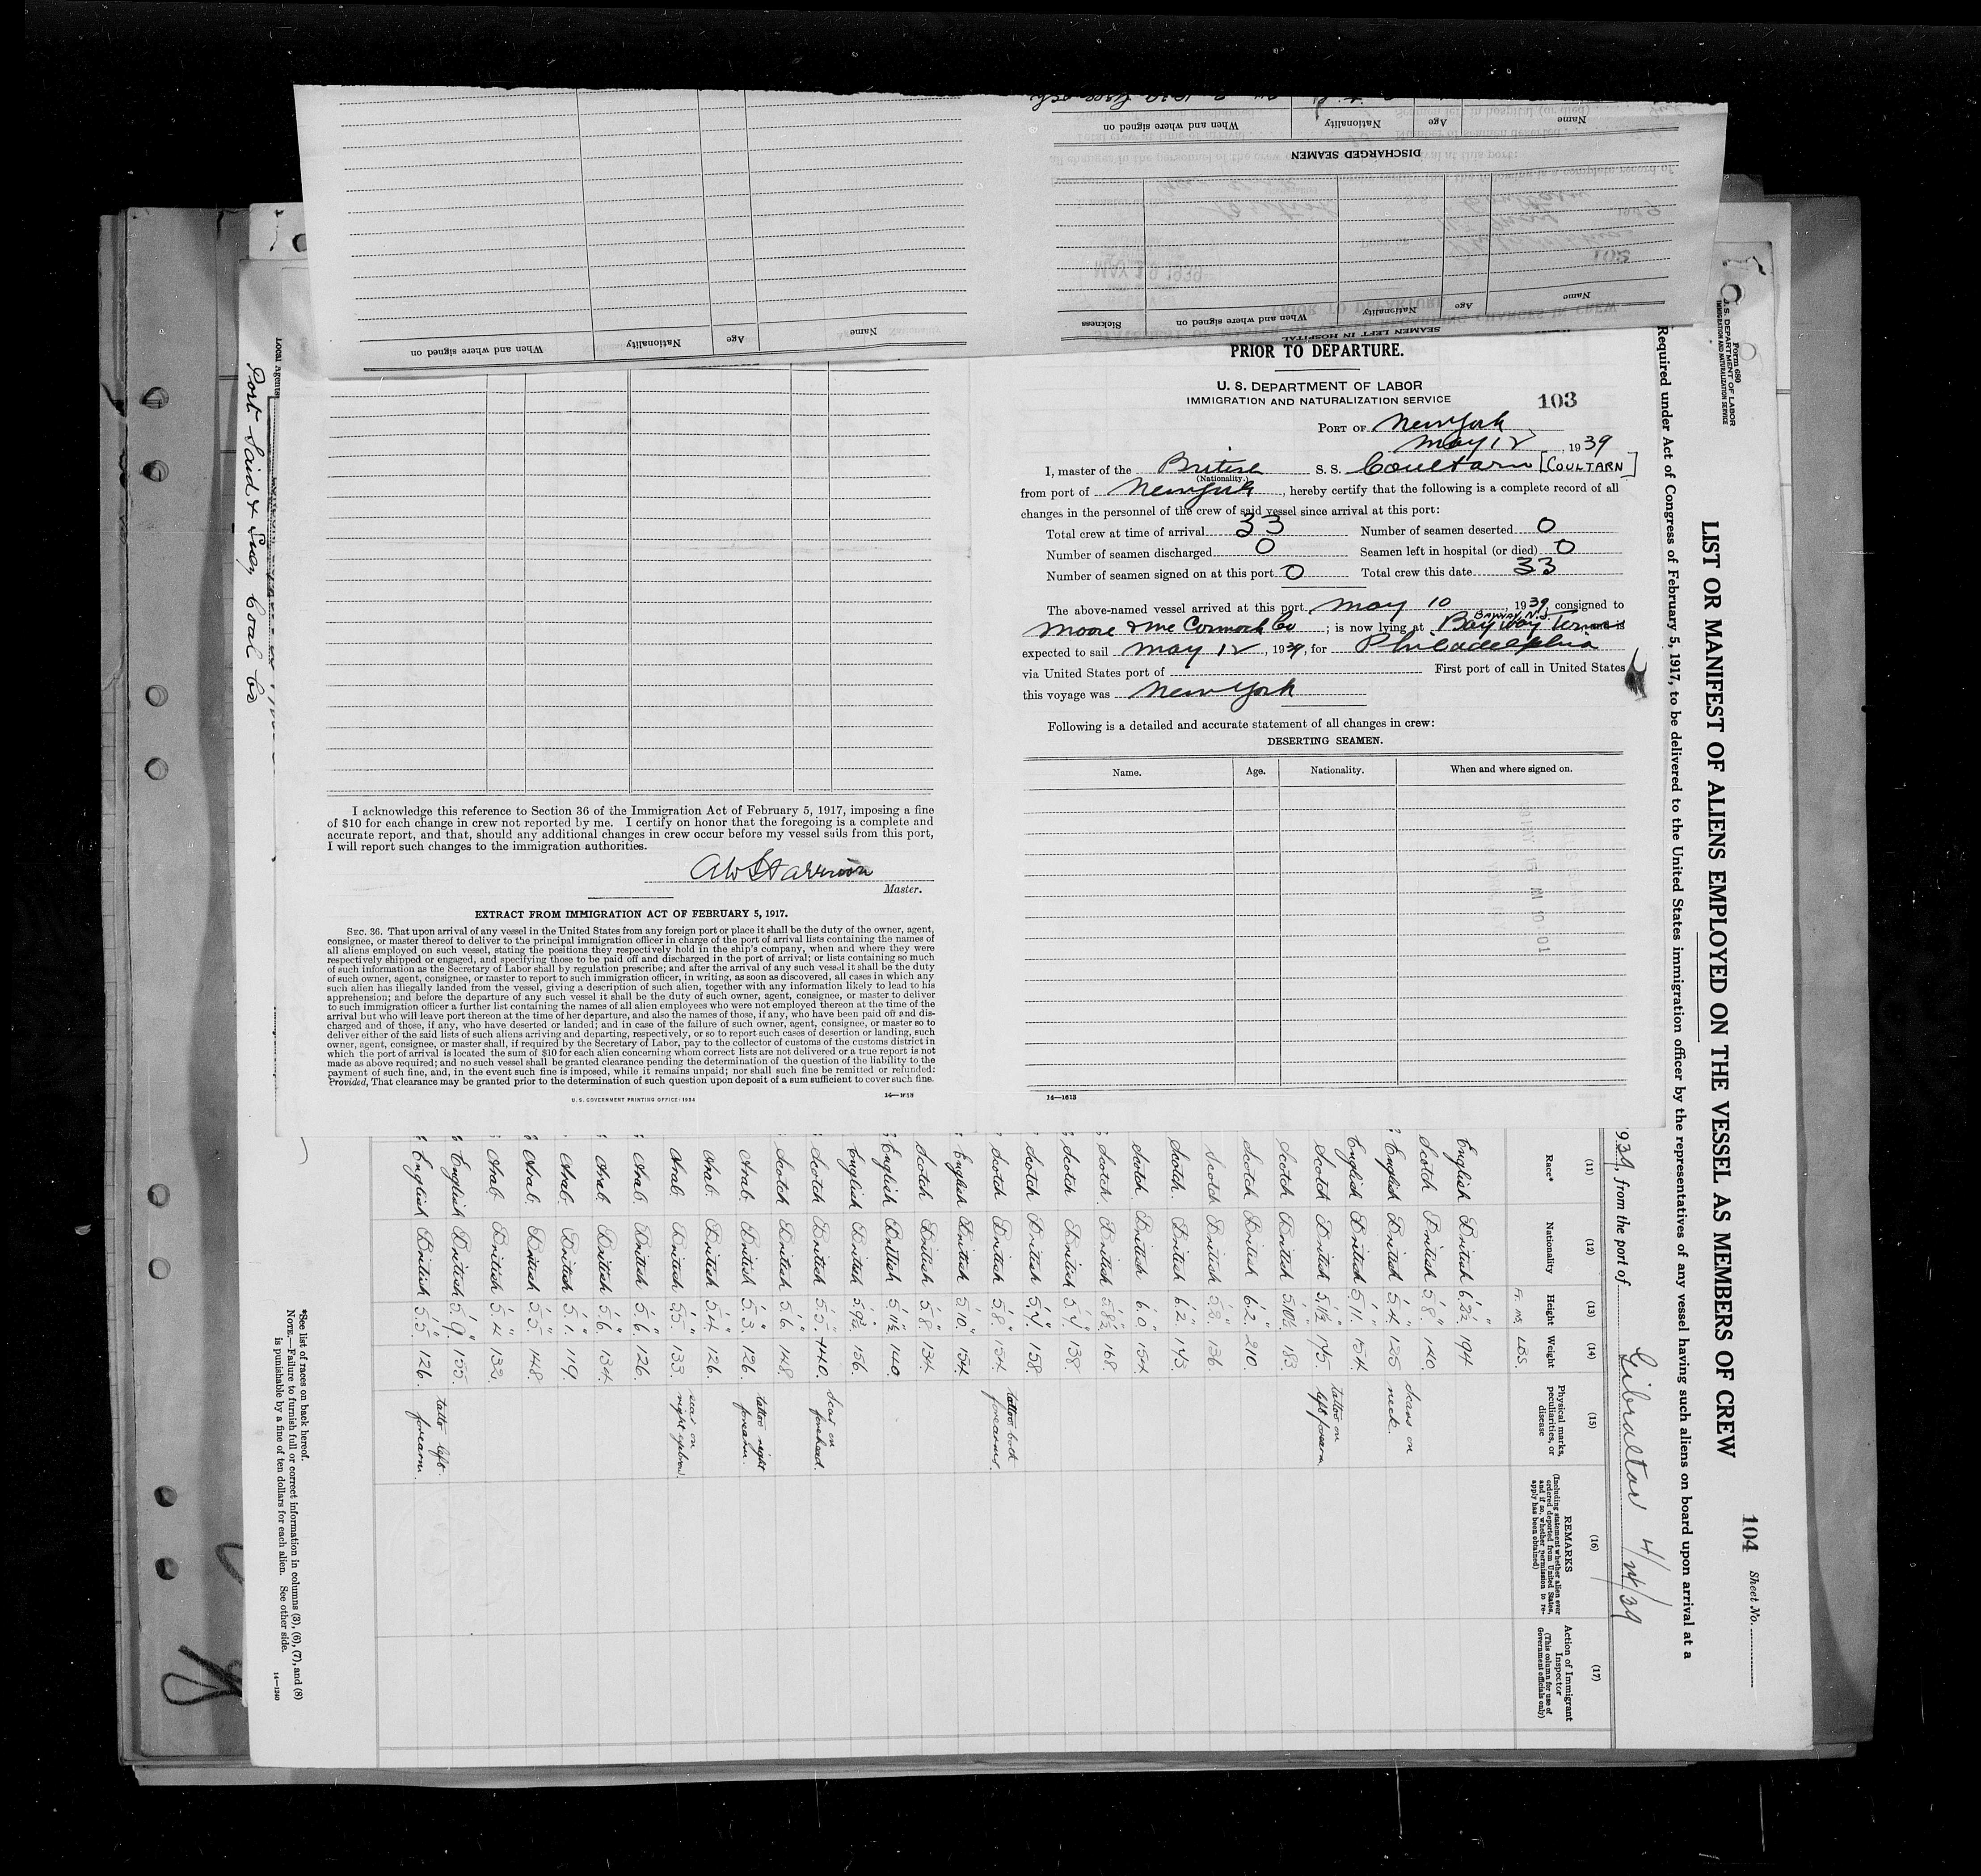 Name When and where signed on Nationality Age
DISCHARGED SEAMEN
Name Age Nationality When and where signed on Sickness
SEAMEN LEFT IN HOSPITAL
Name Age Nationality When and where signed on
PRIOR TO DEPARTURE.
U. S. DEPARTMENT OF LABOR
IMMIGRATION AND NATURALIZATION SERVICE
103
PORT OF New York
May 12, 1939
I, master of the British S. S. Coultarn [COULTARN]
(Nationality.)
from port of New York, hereby certify that the following is a complete record of all
changes in the personnel of the crew of said vessel since arrival at this port:
Total crew at time of arrival 33 Number of seamen deserted 0
Number of seamen discharged 0 Seamen left in hospital (or died) 0
Number of seamen signed on at this port 0 Total crew this date 33
The above-named vessel arrived at this port May 10, 1939, consigned to
BAYWAY N.J.
Moore & McCormack Co; is now lying at Bayway and is
expected to sail May 12, 1939, for Philadelphia
via United States port of First port of call in United States
this voyage was New York
Following is a detailed and accurate statement of all changes in crew:
DESERTING SEAMEN.
Name. Age. Nationality. When and where signed on.
14—1613
I acknowledge this reference to Section 36 of the Immigration Act of February 5, 1917, imposing a fine
of $10 for each change in crew not reported by me. I certify on honor that the foregoing is a complete and
accurate report, and that, should any additional changes in crew occur before my vessel sails from this port,
I will report such changes to the immigration authorities.
Master.
EXTRACT FROM IMMIGRATION ACT OF FEBRUARY 5, 1917.
SEC. 36. That upon arrival of any vessel in the United States from any foreign port or place it shall be the duty of the owner, agent,
consignee, or master thereof to deliver to the principal immigration officer in charge of the port of arrival lists containing the names of
all aliens employed on such vessel, stating the positions they respectively hold in the ship's company, when and where they were
respectively shipped or engaged, and specifying those to be paid off and discharged in the port of arrival; or lists containing so much
of such information as the Secretary of Labor shall by regulation prescribe; and after the arrival of any such vessel it shall be the duty
of such owner, agent, consignee, or master to report to such immigration officer, in writing, as soon as discovered, all cases in which any
such alien has illegally landed from the vessel, giving a description of such alien, together with any information likely to lead to his
apprehension; and before the departure of any such vessel it shall be the duty of such owner, agent, consignee, or master to deliver
to such immigration officer a further list containing the names of all alien employees who were not employed thereon at the time of the
arrival but who will leave port thereon at the time of her departure, and also the names of those, if any, who have been paid off and dis-
charged and of those, if any, who have deserted or landed; and in case of the failure of such owner, agent, consignee, or master so to
deliver either of the said lists of such aliens arriving and departing, respectively, or so to report such cases of desertion or landing, such
owner, agent, consignee, or master shall, if required by the Secretary of Labor, pay to the collector of customs of the customs district in
which the port of arrival is located the sum of $10 for each alien concerning whom correct lists are not delivered or a true report is not
made as above required; and no such vessel shall be granted clearance pending the determination of the question of the liability to the
payment of such fine, and, in the event such fine is imposed, while it remains unpaid; nor shall such fine be remitted or refunded:
Provided, That clearance may be granted prior to the determination of such question upon deposit of a sum sufficient to cover such fine.
U. S. GOVERNMENT PRINTING OFFICE: 1934
Form 680
U.S. DEPARTMENT OF LABOR
IMMIGRATION AND NATURALIZATION SERVICE
104 Sheet No.
LIST OR MANIFEST OF ALIENS EMPLOYED ON THE VESSEL AS MEMBERS OF CREW
Required under Act of Congress of February 5, 1917, to be delivered to the United States immigration officer by the representatives of any vessel having such aliens on board upon arrival at a
939, from the port of Gibraltar
(11) (12) (13) (14) (15) (16) (17)
Race* Nationality Height Weight Physical marks, peculiarities, or disease
REMARKS (Including statement whether alien ever ordered deported from United States, and if so, whether permission to re-apply has been obtained)
Action of Immigrant Inspector (This column for use of Government officials only)
Ft. ins. LBS.
English British 6.2½ 194
Scotch British 5.8 140
English British 5.4 125 Scars on neck
English British 5.11 154
Scotch British 5.11½ 175 tattoo on left forearm
Scotch British 5.10½ 183
Scotch British 6.2 210
Scotch British 5.8 136
Scotch British 6.2 173
Scotch British 6.0 154
Scotch British 5.8½ 168
Scotch British 5.7 138
Scotch British 5.7 158
Scotch British 5.8 154 tattoo both forearms
English British 5.10 154
Scotch British 5.8 134
English British 5.11½ 140
English British 5.9½ 156
Scotch British 5.5 140 Scar on forehead
Scotch British 5.6 148
Arab British 5.3 126 tattoo right forearm
Arab British 5.4 126
Arab British 5.5 133 scar on right eyebrow
Arab British 5.6 126
Arab British 5.6 134
Arab British 5.1 119
Arab British 5.5 148
Arab British 5.4 132
English British 5.9 155
English British 5.5 126 tatto left forearm
*See list of races on back hereof.
NOTE.—Failure to furnish full or correct information in columns (3), (6), (7), and (8)
is punishable by a fine of ten dollars for each alien. See other side.
14—1240
Local Agents
Port Said & Suez Coal Co